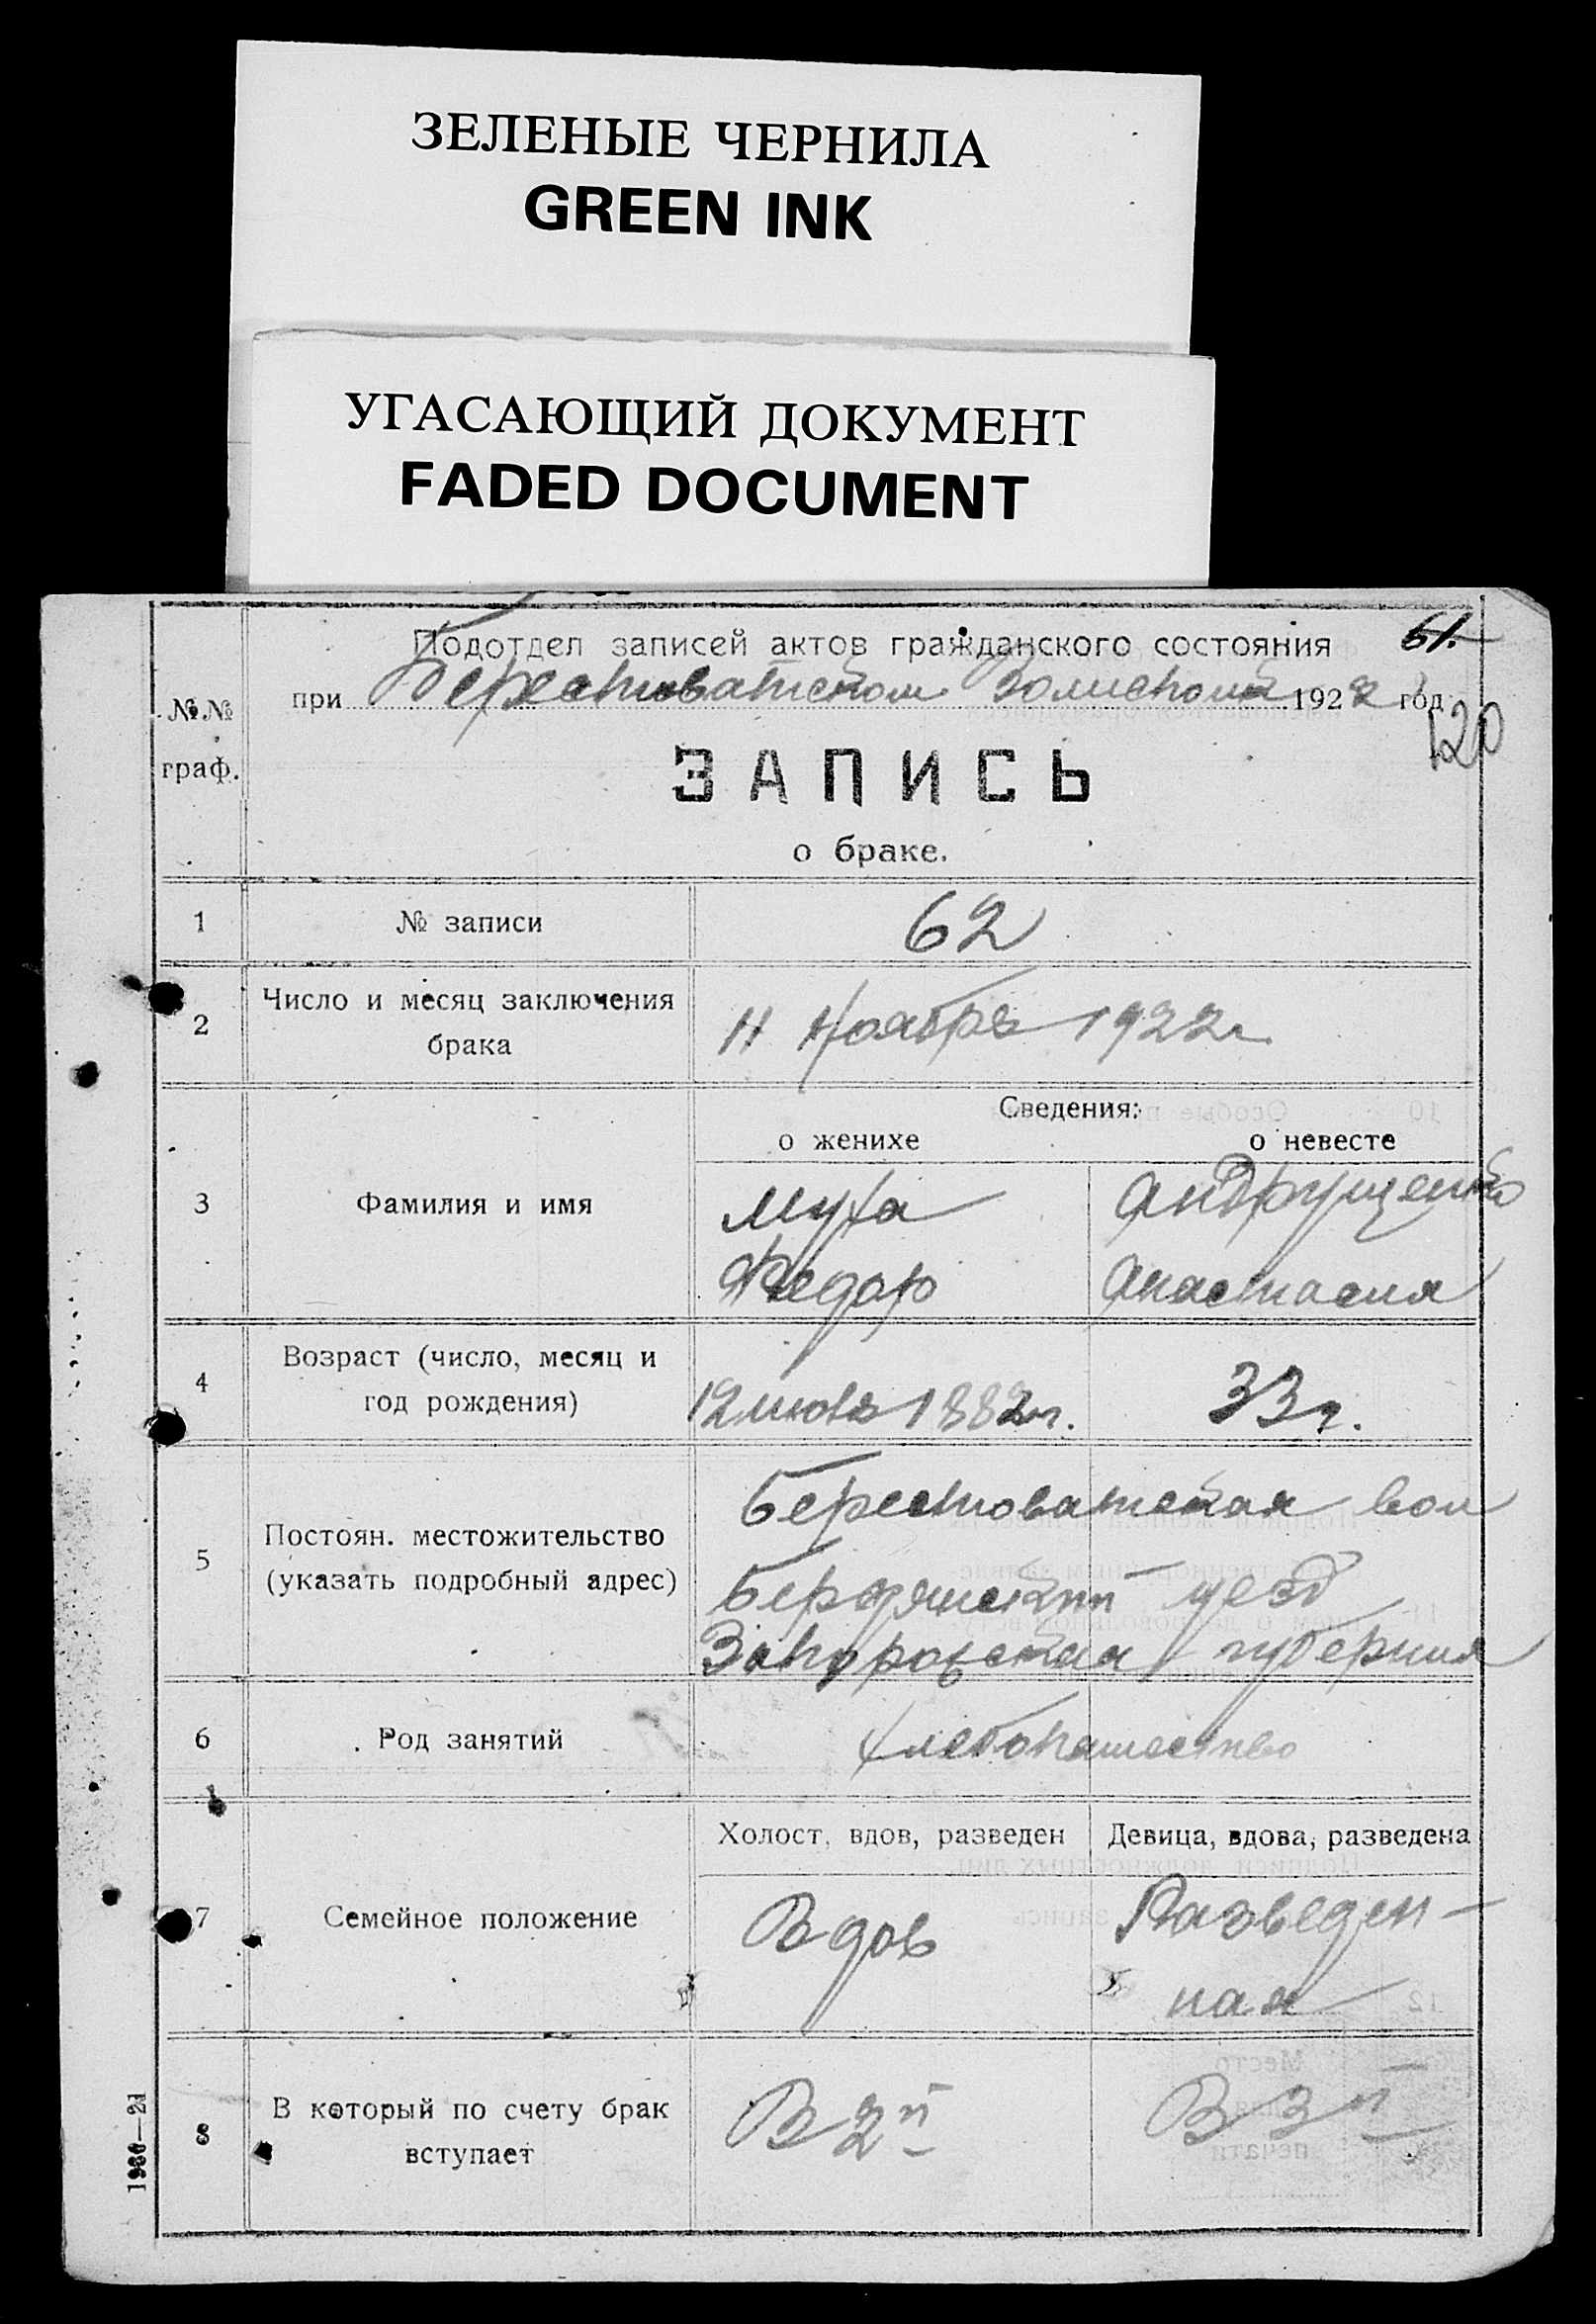 ЗЕЛЕНЫЕ ЧЕРНИЛА
GREEN INK
УГАСАЮЩИЙ ДОКУМЕНТ
FADED DOCUMENT
Подотдел записей актов гражданского состояния
61.
при Берестоватском Волисполк 1922 год
120
№№ граф.
ЗАПИСЬ
о браке.
1 № записи 62
2 Число и месяц заключения брака 11 Ноября 1922 г
Сведения:
о женихе о невесте
3 Фамилия и имя Муха Андрущенко
Федор Анастасия
4 Возраст (число, месяц и год рождения) 12 июня 1882 г. 33 г.
5 Постоян. местожительство (указать подробный адрес) Берестоватская вол
Бердянский уезд
Запорожская губерния
6 Род занятий хлебопашество
Холост, вдов, разведен Девица, вдова, разведена
7 Семейное положение Вдов Разведен-
ная
8 В который по счету брак вступает В 2й В 3й